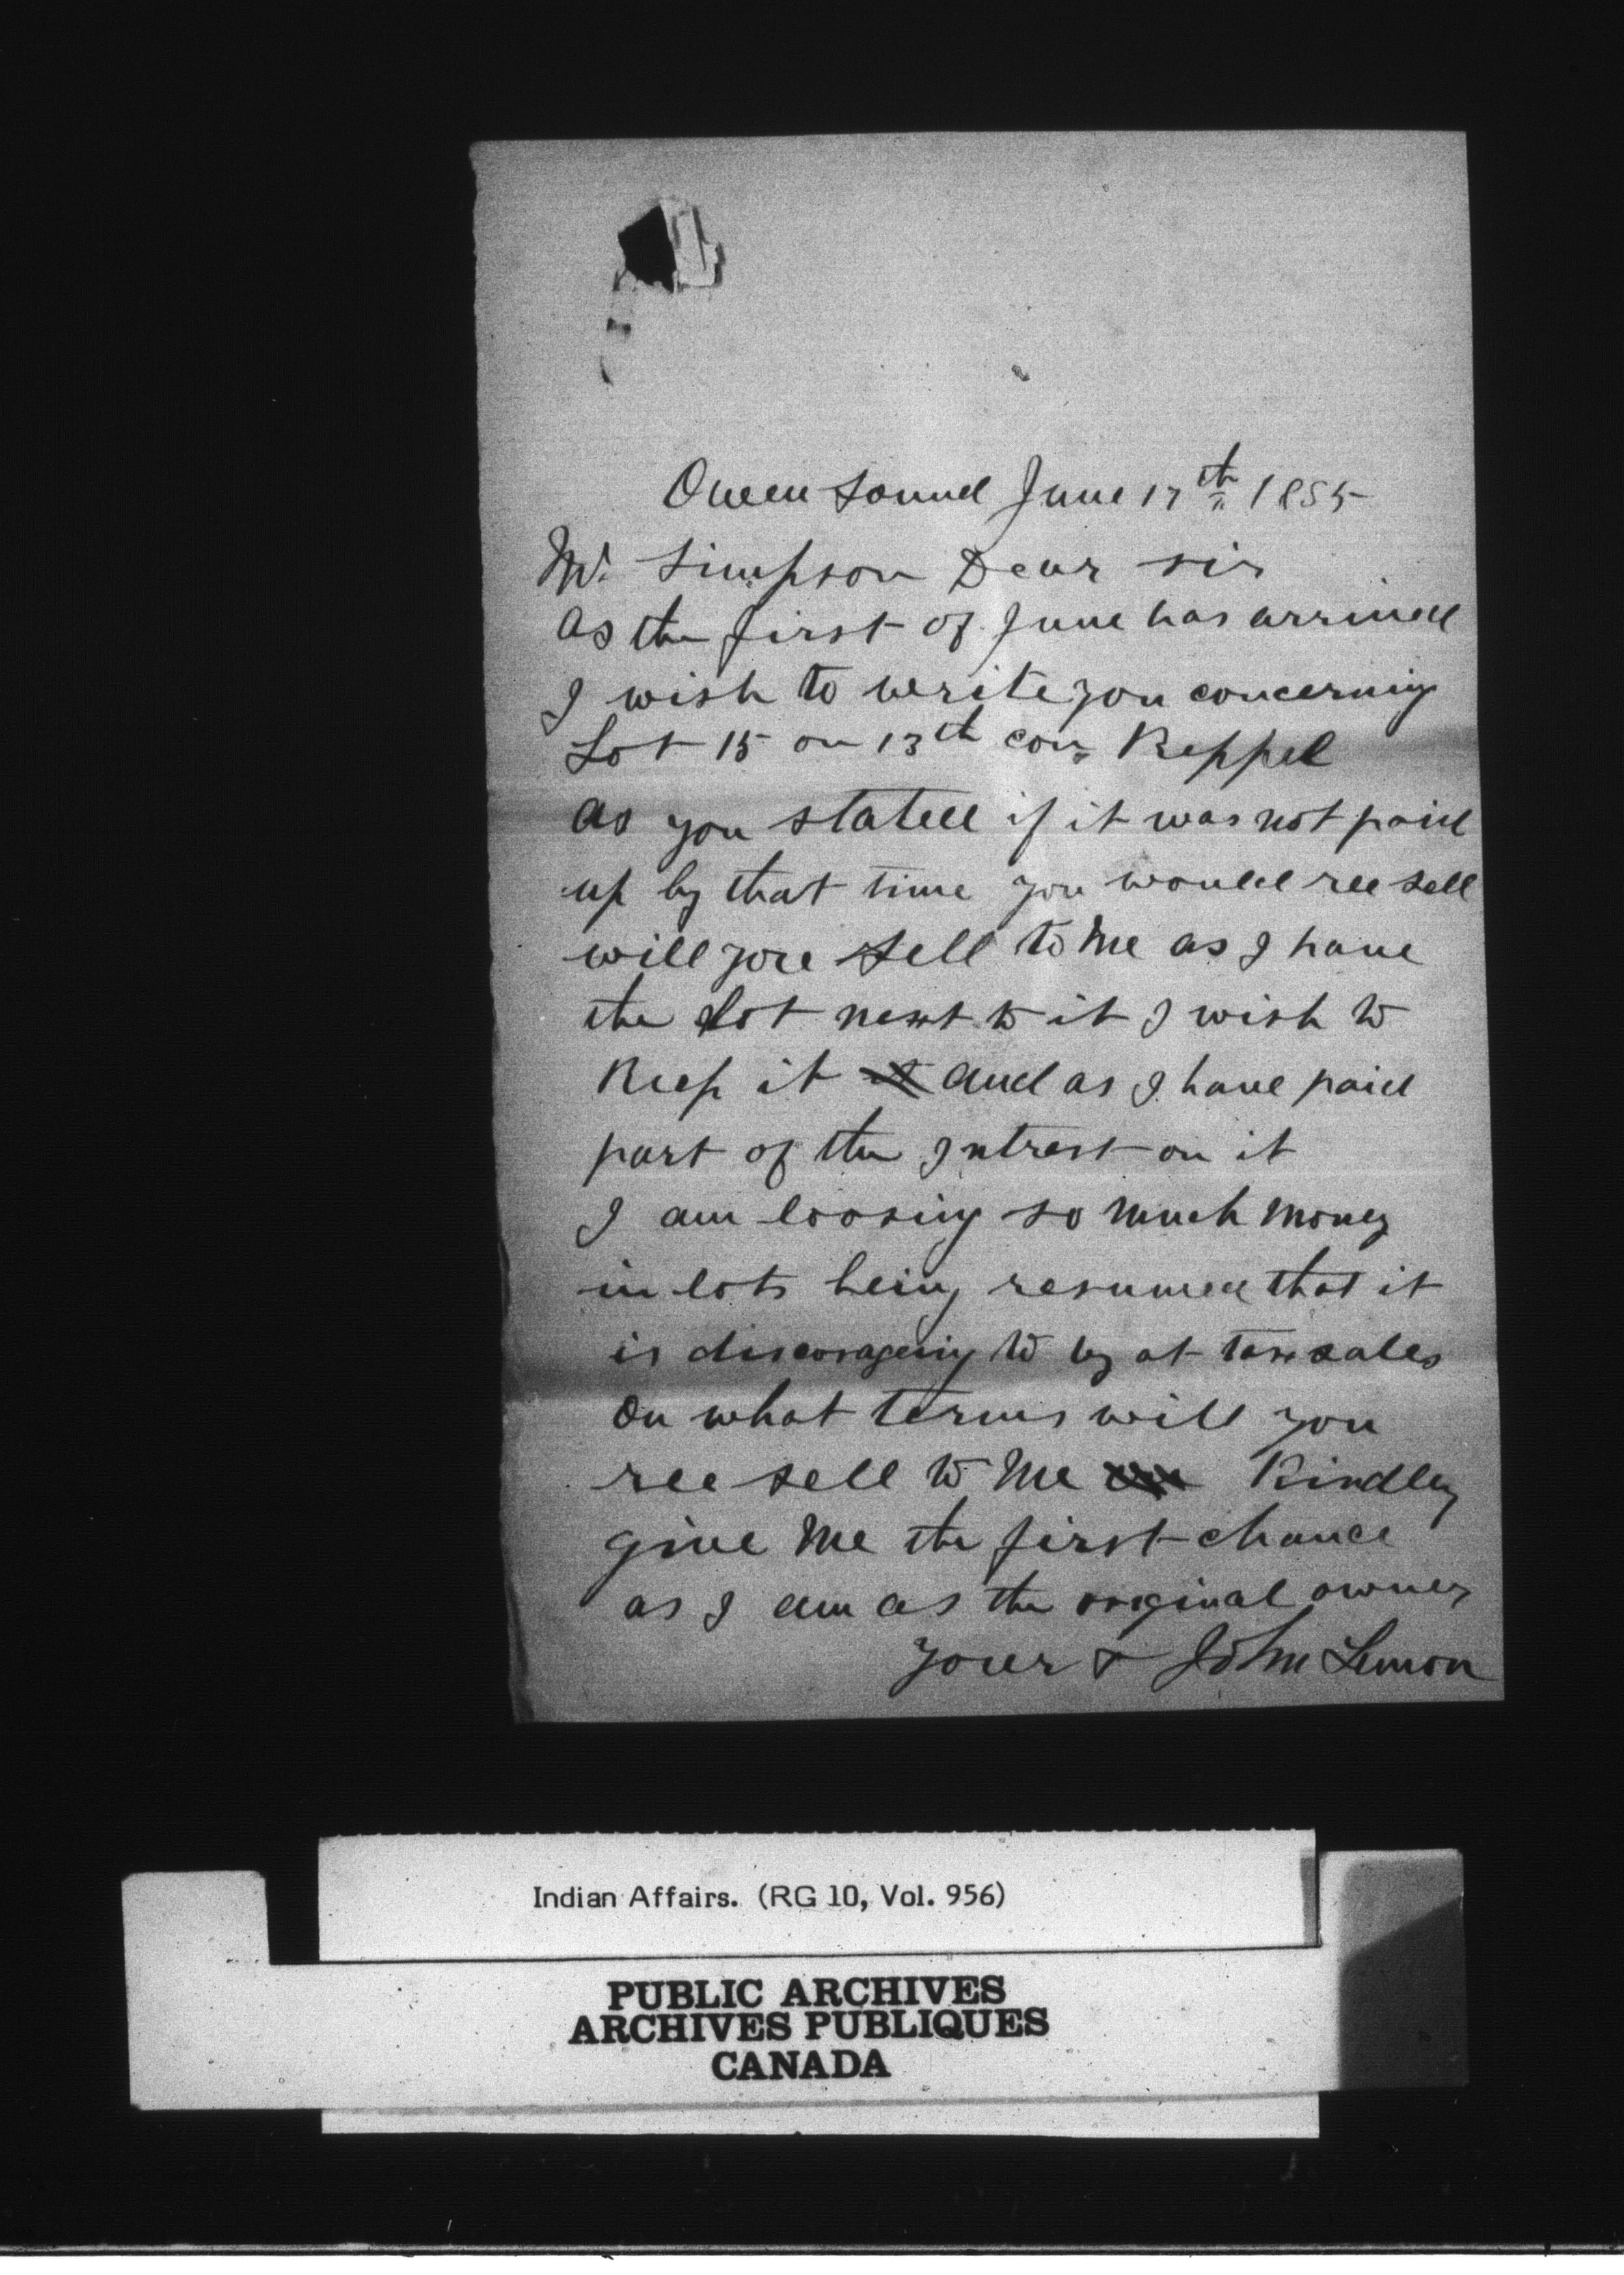 Owen Sound June 17th 1885
Mr. Simpson Dear sir
as the first of June has arrived
I wish to write you concerning
Lot 15 on 13th con. Keppel
as you stated if it was not paid
up by that time you would ree sell
will you sell to me as I have
the lot next to it I wish to
Keep it and as I have paid
part of the Intrest on it
I am loosing so much money
in lots being resumed that it
is discorageing to by at tax sales
On what terms will you
ree sell to me Kindley
give me the first chance
as I am as the original owner
your &  John Lemon
Indian Affairs. (RG 10, Vol. 956)
PUBLIC ARCHIVES
ARCHIVES PUBLIQUES
CANADA